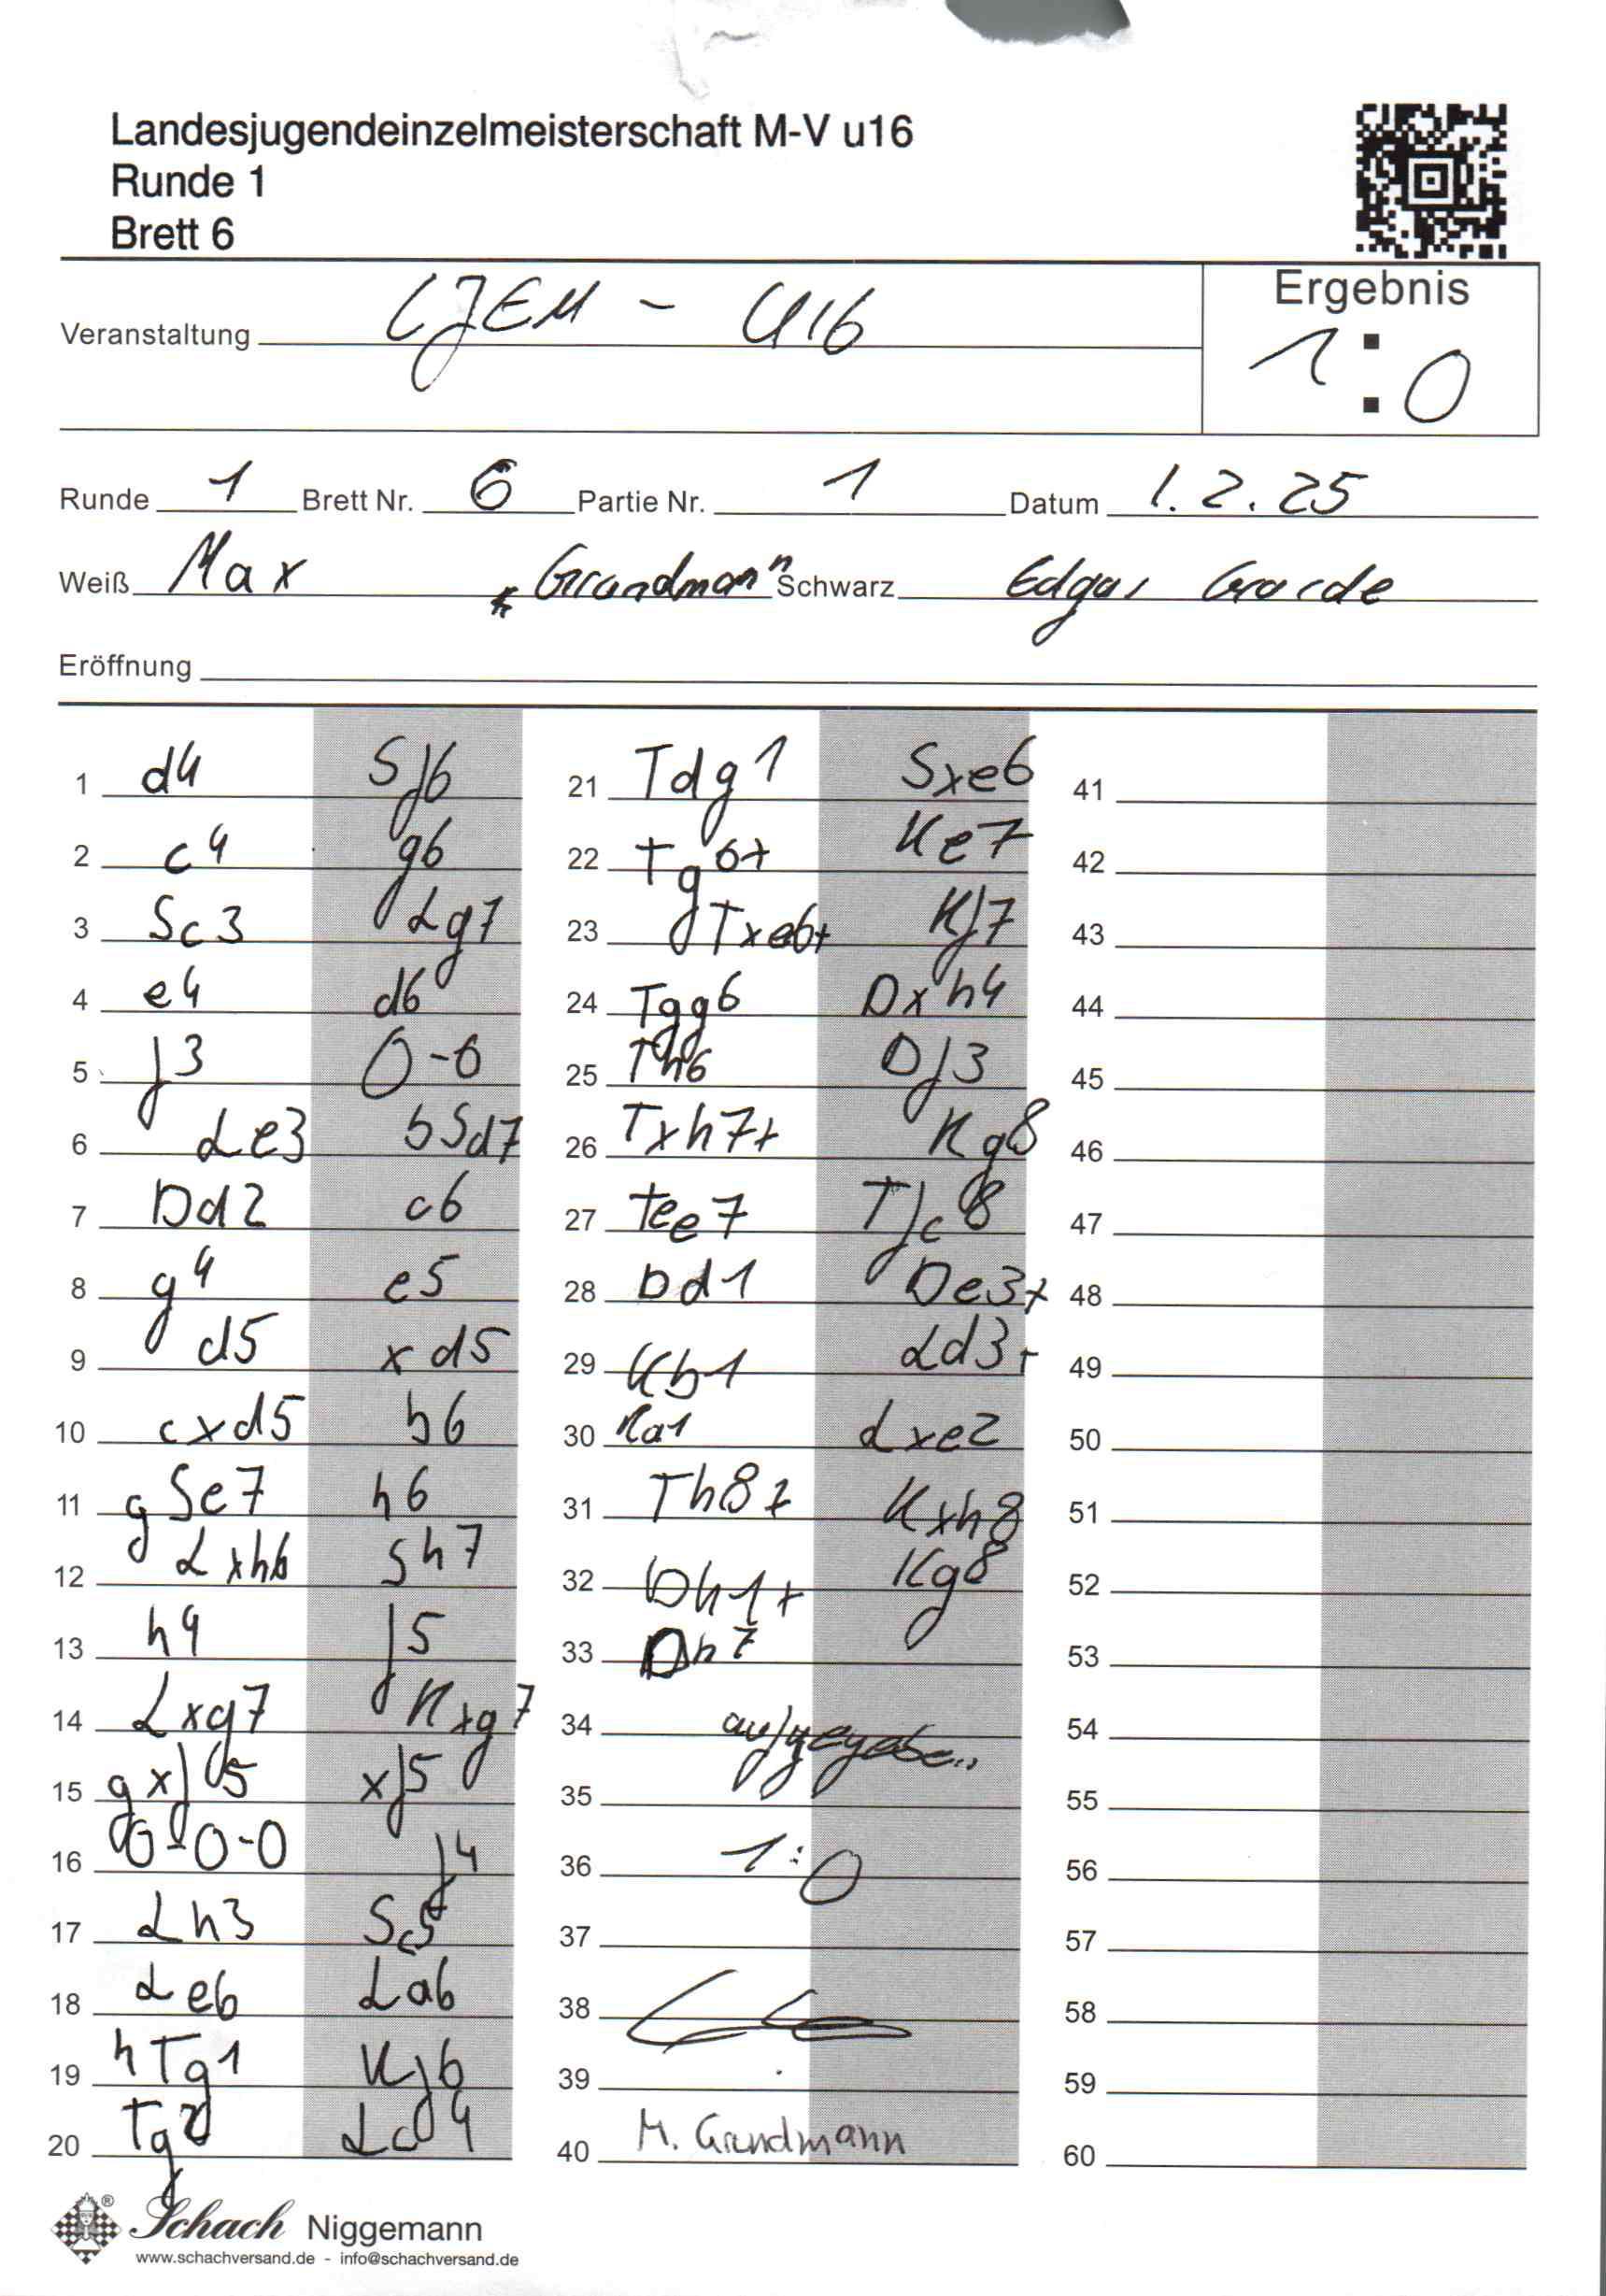 Landesjugendeinzelmeisterschaft M-V u16
Runde 1
Brett 6
Ergebnis
Veranstaltung LJEM - U16
1:0
Runde 1 Brett Nr. 6 Partie Nr. 1 Datum 1.2.25
Weiß Max Grundmann Schwarz Edgar
Eröffnung
1 d4 Sf6
2 c4 g6
3 Sc3 Lg7
4 e4 d6
5 f3 0-0
6 Le3 bSd7
7 Dd2 c6
8 g4 e5
9 d5 xd5
10 cxd5 b6
11 gSe7 h6
12 Lxh6 Sh7
13 h4 f5
14 Lxg7 Kxg7
15 gxf5 xf5
16 0-0-0 f4
17 Lh3 Sc5
18 Le6 La6
19 hTg1 Kf6
20 Tg2 Lc4
21 Tdg1 Sxe6
22 Tg6+ Ke7
23 Txe6+ Kf7
24 Tgg6 Dxh4
25 Th6 Df3
26 Txh7+ Kg8
27 Tee7 Tfc8
28 Dd1 De3+
29 Kb1 Ld3+
30 Ka1 Lxe2
31 Th8+ Kxh8
32 Dh1+ Kg8
33 Dh7
34 aufgegeben
35
36 1:0
37
38
39
40 M. Grundmann
41
42
43
44
45
46
47
48
49
50
51
52
53
54
55
56
57
58
59
60
Schach Niggemann
www.schachversand.de - info@schachversand.de